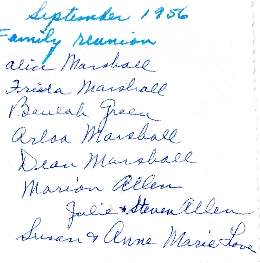 September 1956
Family reunion
Alice Marshall
Frieda Marshall
Beulah Green
Arloa Marshall
Dean Marshall
Marion Allen
Julie & Steven Allen
Susan & Anne Marie Love